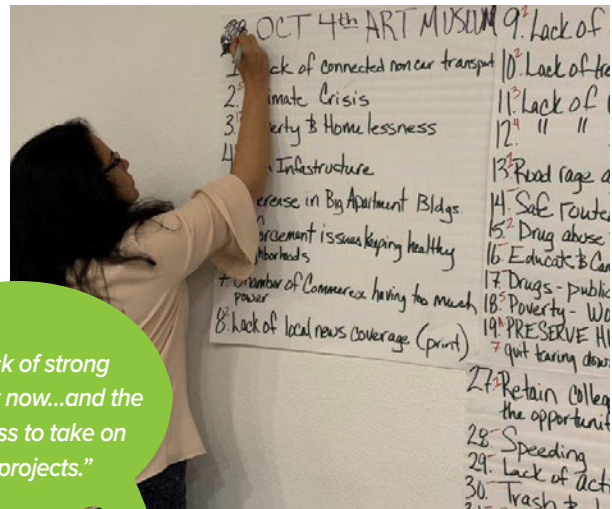 OCT 4th ART MUSEUM
ck of connected non car transport
2. imate Crisis
3. erty & Homelessness
4 Infastructure
crease in Big Apartment Bldgs.
orcement issues keeping healthy
ghborhoods
7. Chamber of Commerce having too much
power
8. Lack of local news coverage (print)
9. Lack of
10. Lack of tre
11. Lack of
12. " "
13. Road rage a
14. Safe route
15. Drug abuse
16. Educate &
17. Drugs - public
18. Poverty - Wo
19. PRESERVE HI
quit tearing down
27. Retain colleg
the opportunit
28. Speeding
29. Lack of acti
30. Trash &
ck of strong
now...and the
ss to take on
projects.”